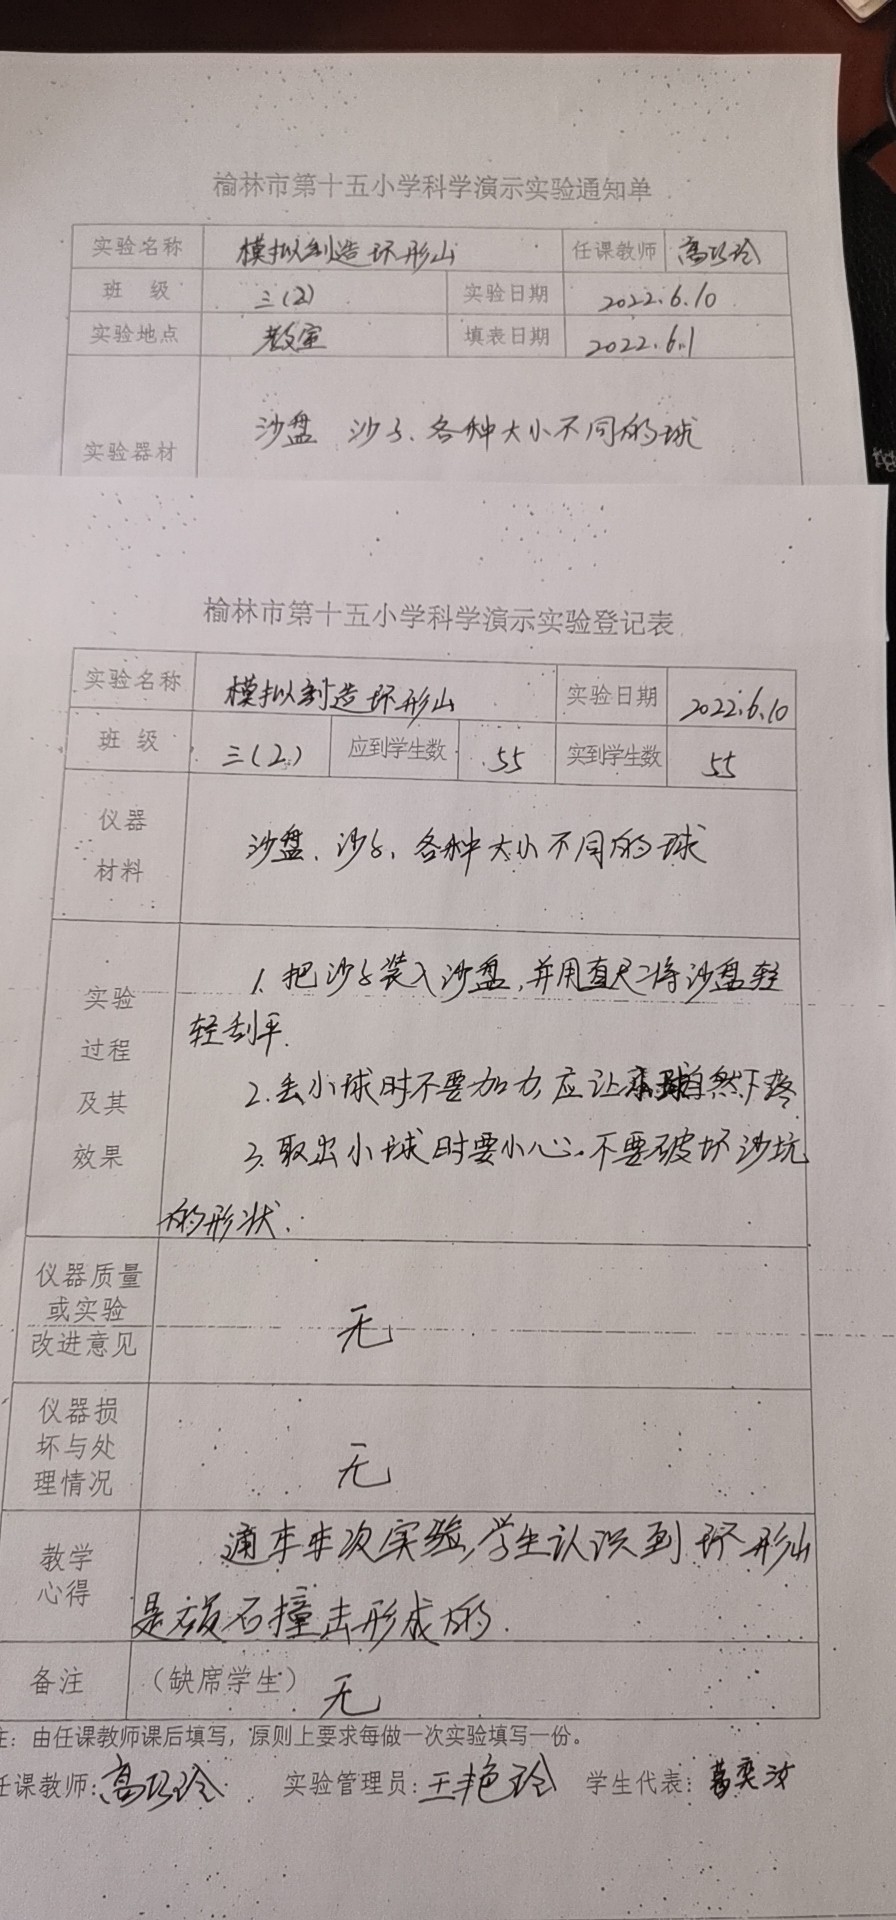 榆林市第十五小学科学演示实验通知单
实验名称 模拟制造环形山 任课教师 高巧玲
班 级 三(2) 实验日期 2022.6.10
实验地点 教室 填表日期 2022.6.1
实验器材 沙盘 沙子、各种大小不同的球
榆林市第十五小学科学演示实验登记表
实验名称 模拟制造环形山 实验日期 2022.6.10
班 级 三(2) 应到学生数 55 实到学生数 55
仪器
材料
沙盘、沙子、各种大小不同的球
实验
过程
及其
效果
1. 把沙子装入沙盘,并用直尺将沙盘轻
轻刮平.
2. 丢小球时不要加力,应让小球自然下落
3. 取出小球时要小心.不要破坏沙坑
的形状.
仪器质量
或实验
改进意见
无
仪器损
坏与处
理情况
无
教学
心得
通本次实验,学生认识到环形山
是石撞击形成的.
备注 (缺席学生) 无
注:由任课教师课后填写,原则上要求每做一次实验填写一份。
任课教师:高巧玲 实验管理员:王艳玲 学生代表:奕汝